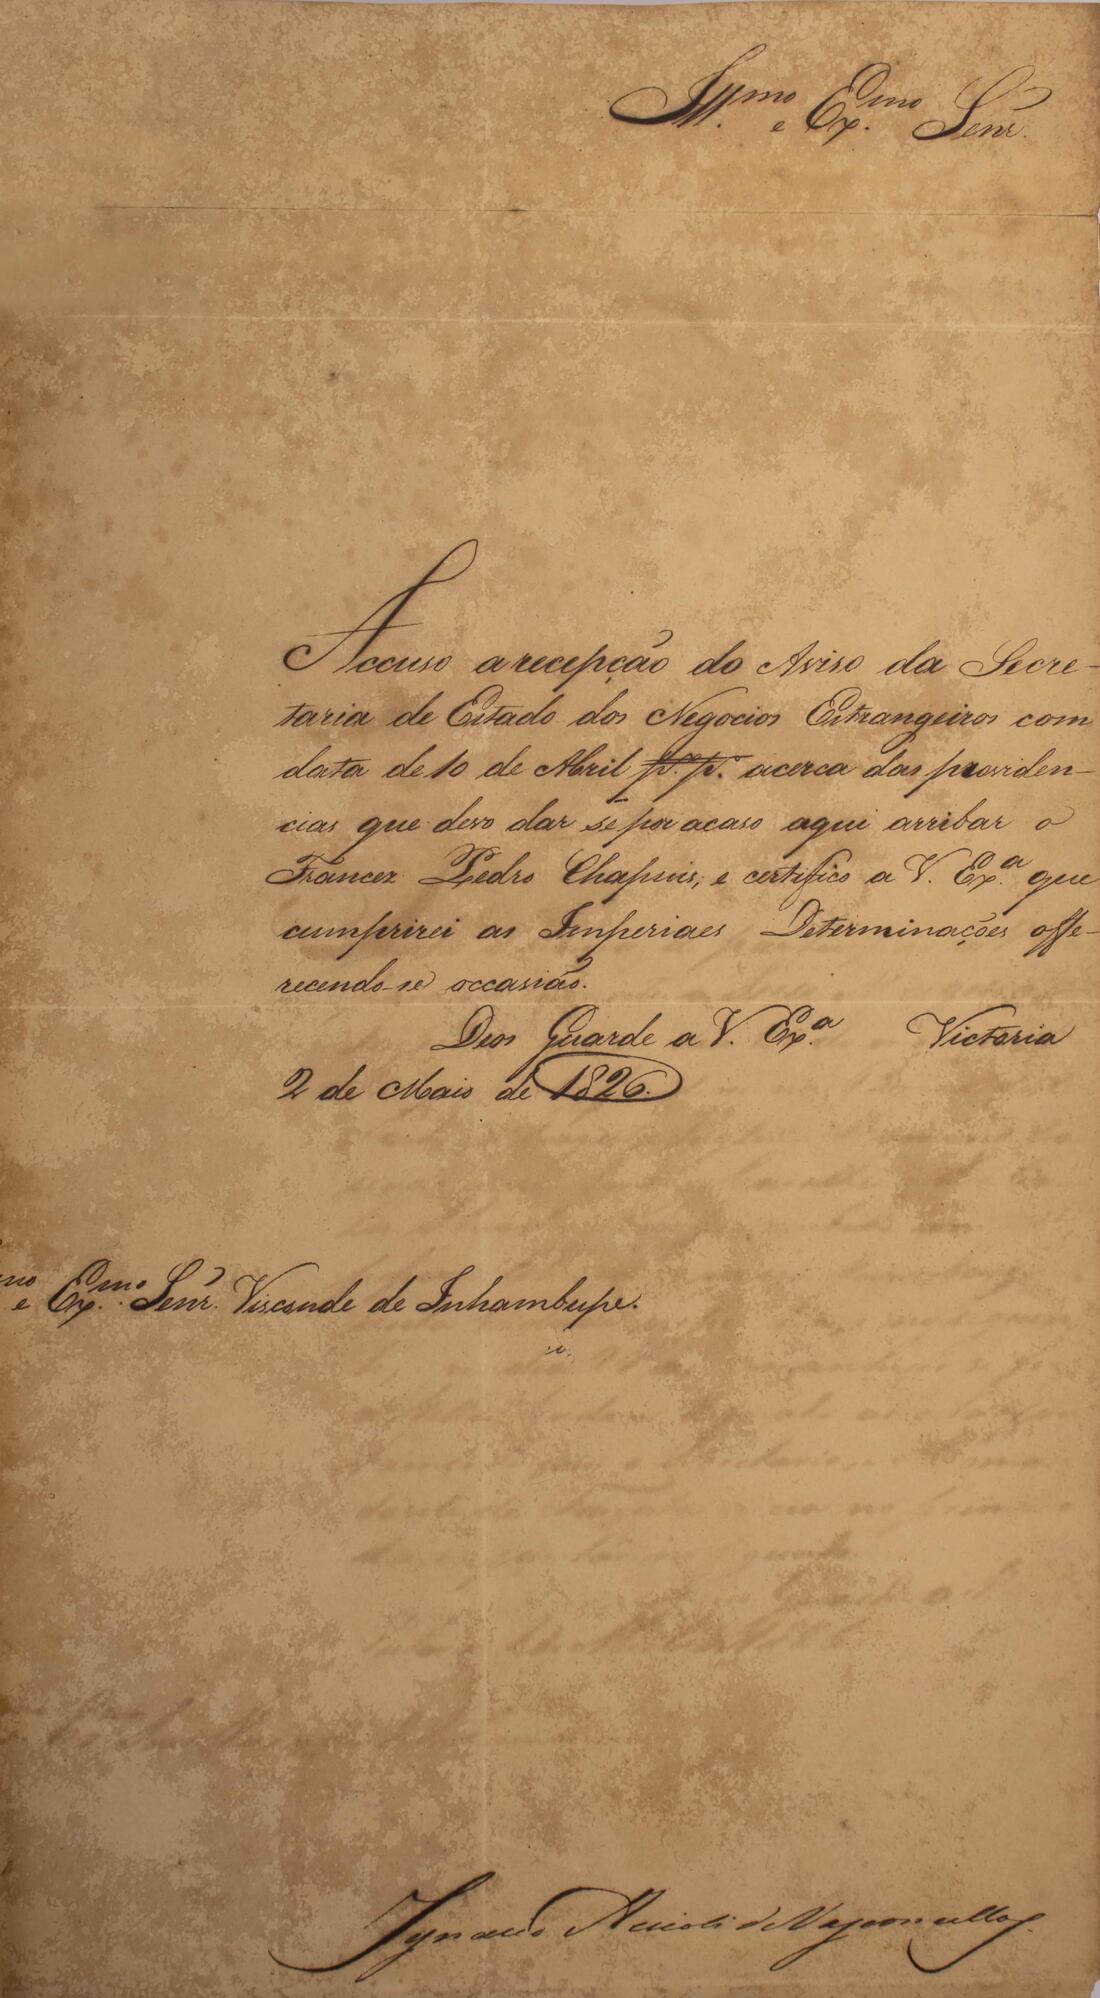 Ill.mo e Ex.mo Senr.
Accuso a recepção do Aviso da Secre-
taria de Estado dos Negocios Estrangeiros com
data de 10 de Abril p.o p.o acerca das providen-
cias que devo dar se por acaso aqui arribar o
Francez Pedro Chapuis; e certifico a V. Ex.a que
cumprirei as Imperiaes Determinações offe-
recendo-se occasião.
Deos Guarde a V. Ex.a Victoria
2 de Maio de 1826.
mo e Ex.mo Senr. Visconde de Inhambupe.
Ignacio Accioli de Vasconcellos.